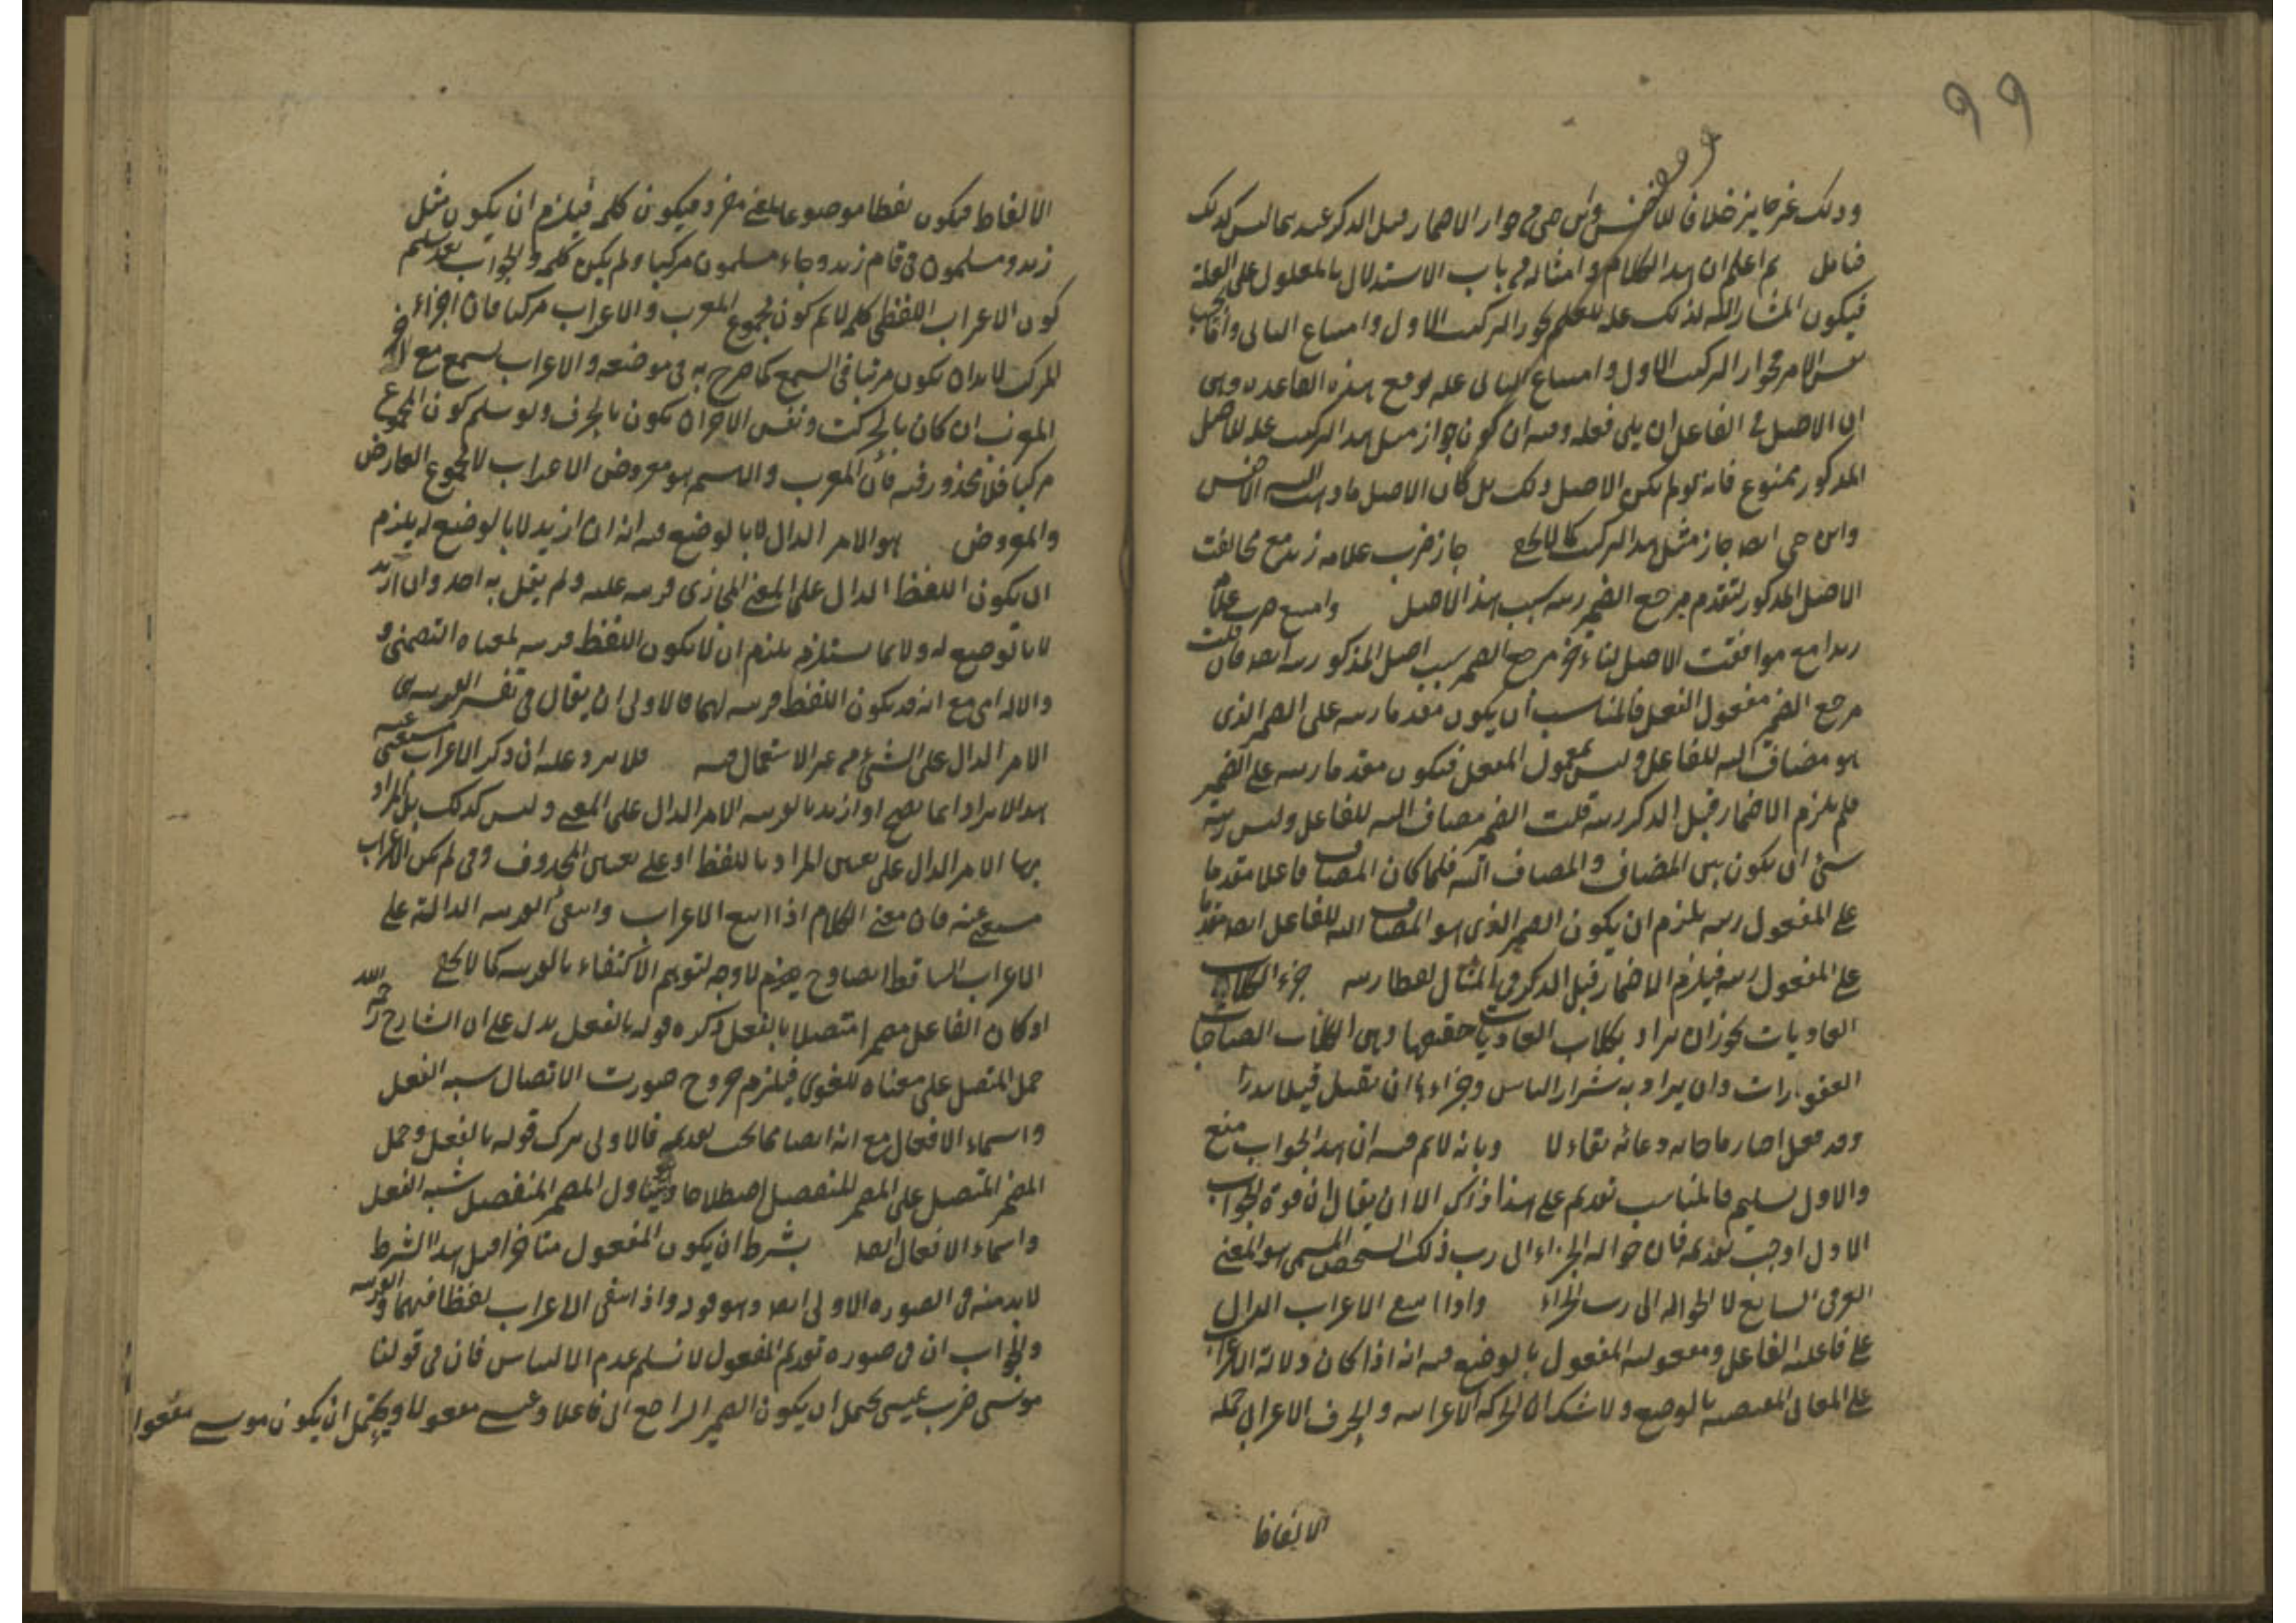 ٩٩
وذلك غير جايز خلافا للاخفش وابن جني في جواز الاضمار قبل الذكر عنه مما ليس كذلك
فتامل ثم اعلم ان هذا الكلام وامثاله في باب الاستدلال بالمعلول على العلة
فيكون المشار اليه لذلك علة للعلم بجواز التركيب الاول وامتناع الثاني واما بحسب
نفس الامر فجواز التركيب الاول وامتناع الثاني علة لوضع هذه القاعدة وهي
ان الاصل في الفاعل ان يلي فعله وفيه ان كون جواز مثل هذا التركيب علة للاصل
المذكور ممنوع فانه لو لم يكن الاصل ذلك بل كان الاصل ما ذهب اليه الاخفش
وابن جني ايضا جاز مثل هذا التركيب كما لا يخفى جاز ضرب غلامه زيد مع مخالفت
الاصل المذكور لتقدم مرجع الضمير رتبة بسبب هذا الاصل وامتنع ضرب غلامه
زيدا مع موافقت الاصل لتاخر مرجع الضمير بسبب اصل المذكور رتبة ايضا فان قلت
مرجع الضمير مفعول الفعل فالمناسب ان يكون مقدما رتبة على الضمير الذي
هو مضاف اليه للفاعل وليس بمعمول الفعل فيكون مقدما رتبة على الضمير
فلم يلزم الاضمار قبل الذكر رتبة قلت الضمير مضاف اليه للفاعل وليس رتبة
شئ ان يكون بين المضاف والمضاف اليه فلما كان المضاف فاعلا مقدما
على المفعول رتبة يلزم ان يكون الضمير الذي هو المضاف اليه للفاعل ايضا مقدما
على المفعول رتبة فيلزم الاضمار قبل الذكر في المثال لفظا رتبة جزاء الكلاب
العاويات يجوز ان يراد بكلاب العاويات حقيقتها وهي الكلاب الصاحبات
العقورات وان يراد به شرار الناس وجزاءها ان تقتل قيل
وقد فعل وبانه لا تم فيه ان هذا الجواب منع
والاول تسليم فالمناسب تقديم على هذا ذاكر الا ان يقال ان قوة الجواب
الاول اوجبت تقديمه فان حوالة الجزاء الى رب ذلك الشخص المسمى هو المعنى
العرفي السايغ لا الحوالة الى رب الجزاء واذا انتفى الاعراب الدال
على فاعلية الفاعل ومفعولية المفعول بالوضع فيه انه اذا كان دلالة الاعراب
على المعاني المقتضية بالوضع ولا شك ان الحركة الاعرابية والحرف الاعرابي جملة
الالفاظ
الالفاظ فيكون لفظا موضوعا لمعنى مفرد فيكون كلمة فيلزم ان يكون مثل
زيد ومسلمون في قام زيد وجاء مسلمون مركبا ولم يكن كلمة والجواب بعد تسليم
كون الاعراب اللفظي كلمة لا تم كون مجموع المعرب والاعراب مركبا فان اجزاء
المركب لا بد ان يكون مرتبا في السمع كما صرح به في موضعه والاعراب يسمع مع الاخر
المعرب ان كان بالحركت ونفس الاخر ان يكون بالحرف ولو سلم كون المجموع
مركبا فلا محذور فيه فان المعرب والاسم هو معروض الاعراب لا مجموع العارض
والمعروض هو الامر الدال لا بالوضع فيه انه ان اريد لا بالوضع له يلزم
ان يكون اللفظ الدال على المعنى المجازي قرينة عليه ولم يقل به احد وان اريد
لا بالوضع له ولا بما يستلزمه يلزم ان لا يكون اللفظ قرينة لمعناه التضمني و
والالتزامي مع انه قد يكون اللفظ قرينة لهما فالاولى ان يقال في تفسير القرينة هي
الامر الدال على الشئ من غير الاستعمال فيه فلا يرد عليه ان ذكر الاعراب مستغنى عنه
هذا الايراد انما يصح او اريد بالقرينة الامر الدال على المعنى وليس كذلك بل المراد
بها الامر الدال على تعيين المراد باللفظ او على تعيين المحذوف وفي لم يكن الاعراب
مستغنى عنه فان معنى الكلام اذا انتفى الاعراب وانتفى القرينة الدالة على
الاعراب الساقط ايضا وح يلزم لا وجه لتوهم الاكتفاء بالقرينة كما لا يخفى
او كان الفاعل مضمرا متصلا بالفعل ذكره قوله بالفعل يدل على ان الشارح رحمه الله
حمل المتصل على معناه اللغوي فيلزم خروج صورت الاتصال بشبه الفعل
واسماء الافعال مع انه ايضا مما يجب تقديمه فالاولى ترك قوله بالفعل وحمل
المضمر المتصل على المضمر المتصل اصطلاحا ويتناول المضمر المنفصل شبه الفعل
واسماء الافعال ايضا بشرط ان يكون المفعول متاخرا قيل هذا الشرط
لا بد منه في الصورة الاولى ايضا وهو قوله واذا انتفى الاعراب لفظا فيهما والقرينة
والجواب ان في صورة تقديم المفعول لا نسلم عدم الالتباس فان في قولنا
موسى ضرب عيسى يحتمل ان يكون الضمير الراجع الى فاعلا وعيسى مفعولا ويحتمل ان يكون موسى مفعولا